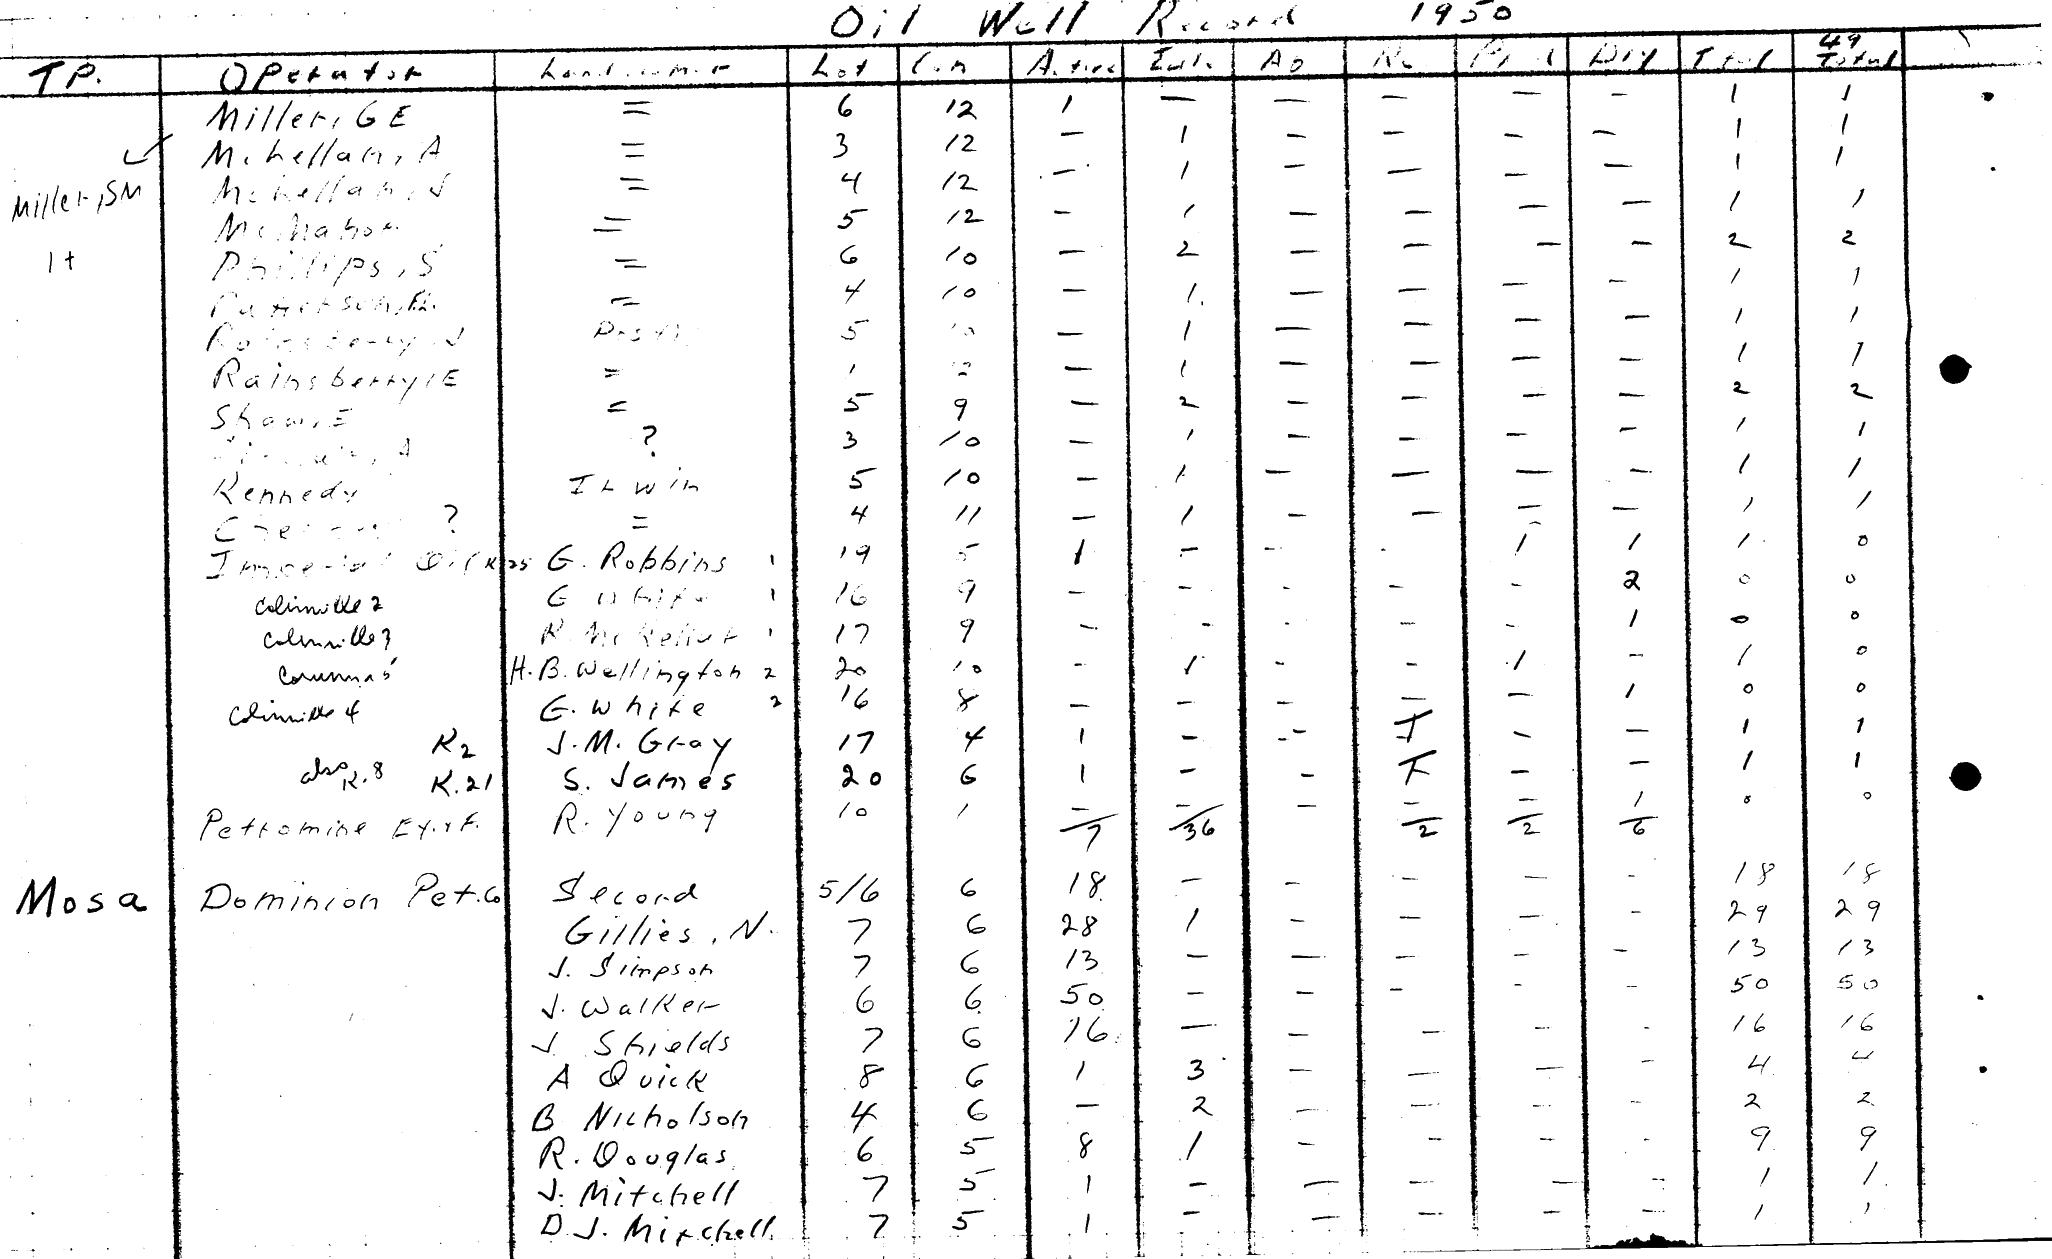 Oil Well Record 1950
TP. Operator Landowner Lot Con Active Idle Ab Prod Dry Total 49 Total
Miller, G E = 6 12 1 — — — — — 1 1
McKellan, A = 3 12 — 1 — — — — 1 1
Miller, SM McKellan, J = 4 12 — 1 — — — — 1 1
McMahon = 5 12 — 1 — — — — 1 1
1+ Phillips, S = 6 10 — 2 — — — — 2 2
= 4 10 — 1 — — — — 1 1
Rainsberry, J 5 10 — 1 — — — — 1 1
Rainsberry, E = 1 — 1 — — — — 1 1
Shaw, E = 5 9 — 2 — — — — 2 2
? 3 10 — 1 — — — — 1 1
Kennedy Irwin 5 10 — 1 — — — — 1 1
? = 4 11 — 1 — — — — 1 1
Imperial Oil K 25 G. Robbins 1 19 5 1 — — - 1 1 1 0
Colinville 2 G White 1 16 9 — — — — — 2 0 0
Colinville 3 1 17 9 — — — — — 1 0 0
H. B. Wellington 2 20 10 — 1 — — 1 — 1 0
Colinville 4 G. White 2 16 8 — — — — — 1 0 0
K2 J. M. Gray 17 4 1 — — — — 1 1
also K.8 K.21 S. James 20 6 1 — — — — 1 1
Petromine R. Young 10 1 — — — — — 1 0 0
7 36 2 2 6
Mosa Dominion Pet. Co Second 5/6 6 18 — — — — — 18 18
Gillies, N. 7 6 28 1 — — — — 29 29
J. Simpson 7 6 13 — — — — — 13 13
J. Walker 6 6 50 — — — — — 50 50
J Shields 7 6 16 — — — — — 16 16
A Quick 8 6 1 3 — — — — 4 4
B Nicholson 4 6 — 2 — — — — 2 2
R. Douglas 6 5 8 1 — — — — 9 9
J. Mitchell 7 5 1 — — — — — 1 1
D. J. Mitchell 7 5 1 — — — — — 1 1